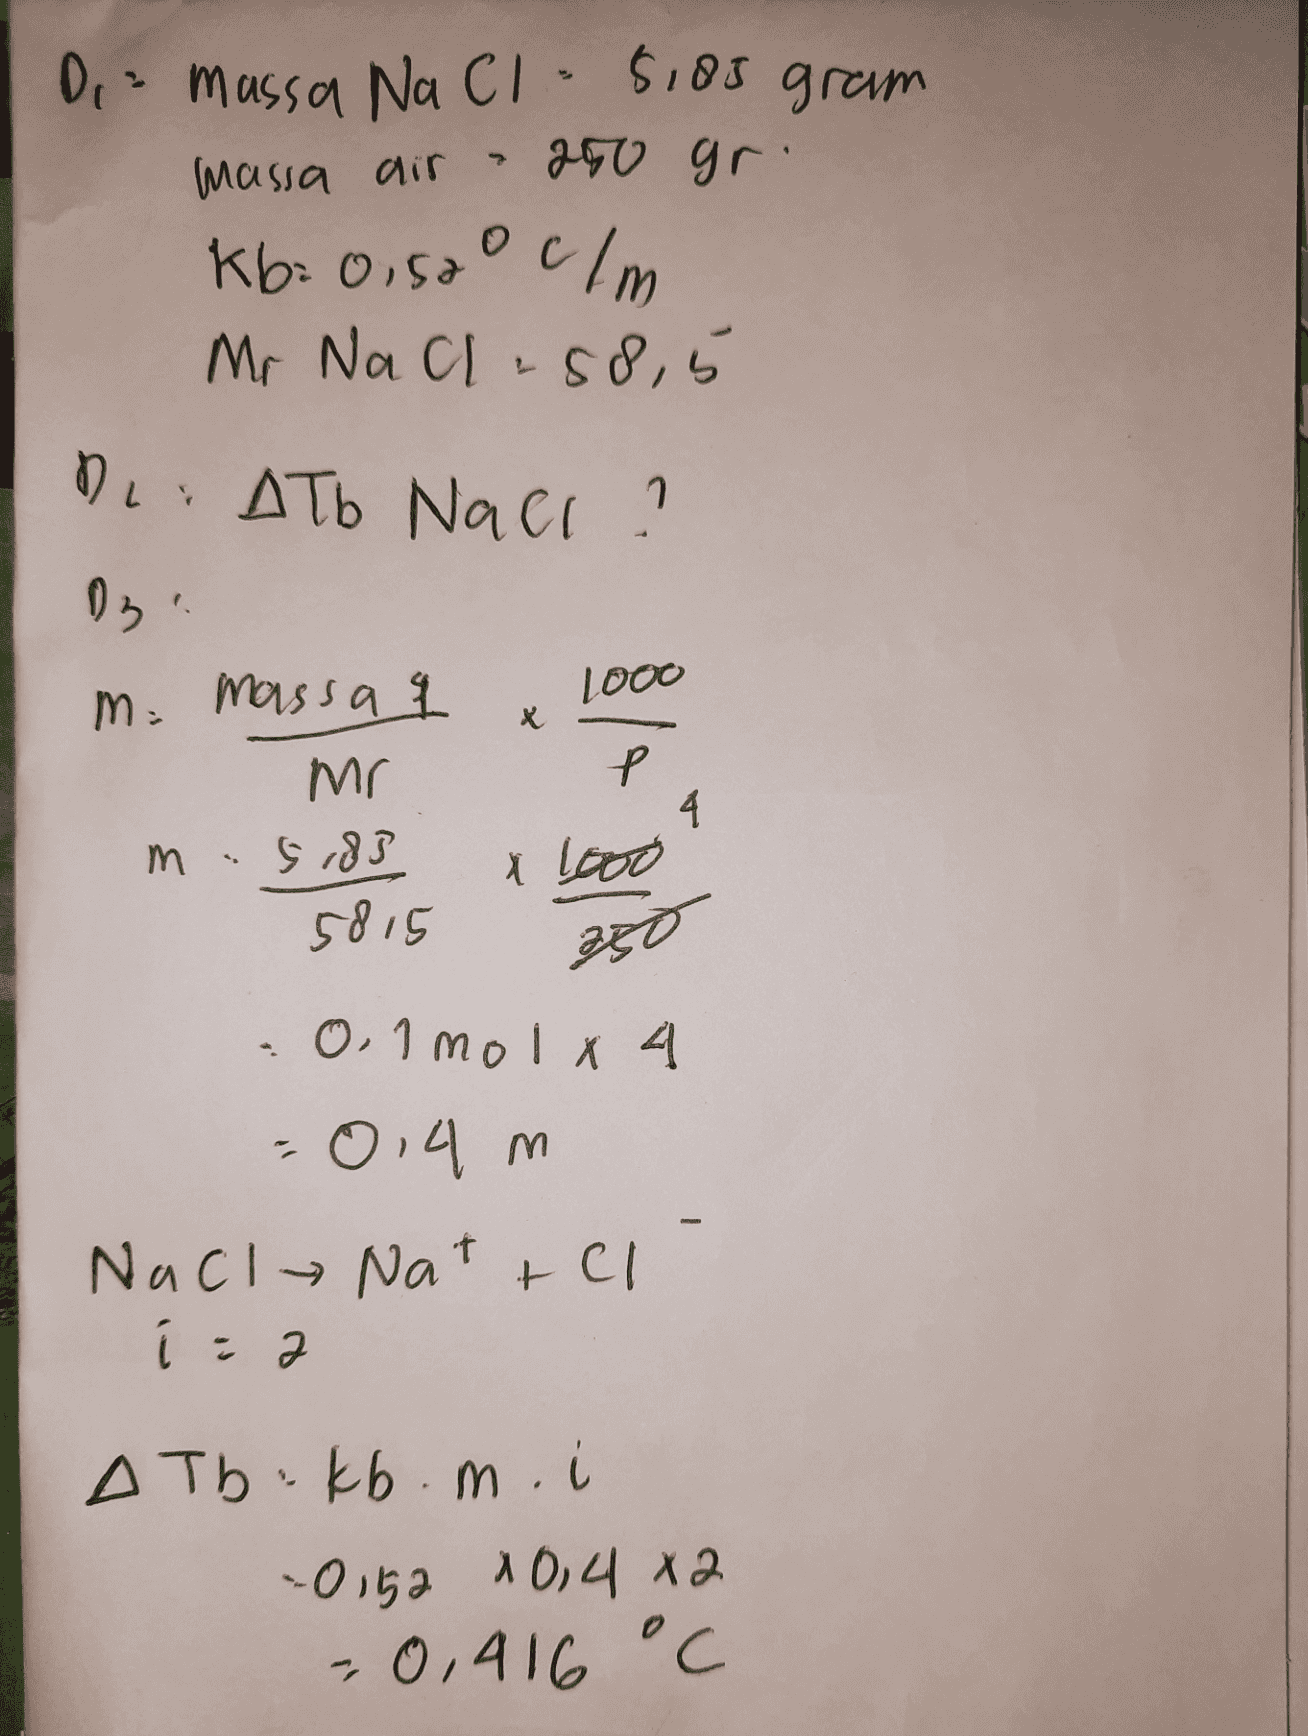 D1 = massa NaCl = 5,85 gram
massa air = 250 gr.
Kb = 0,52 °C/m
Mr NaCl = 58,5
D2 : ΔTb NaCl ?
D3 :
m = massa q / Mr x 1000 / P
m = 5,85 / 58,5 x 1000 / 250 4
= 0,1 mol x 4
= 0,4 m
NaCl → Na⁺ + Cl⁻
i = 2
ΔTb = kb . m . i
= 0,52 x 0,4 x 2
= 0,416 °C